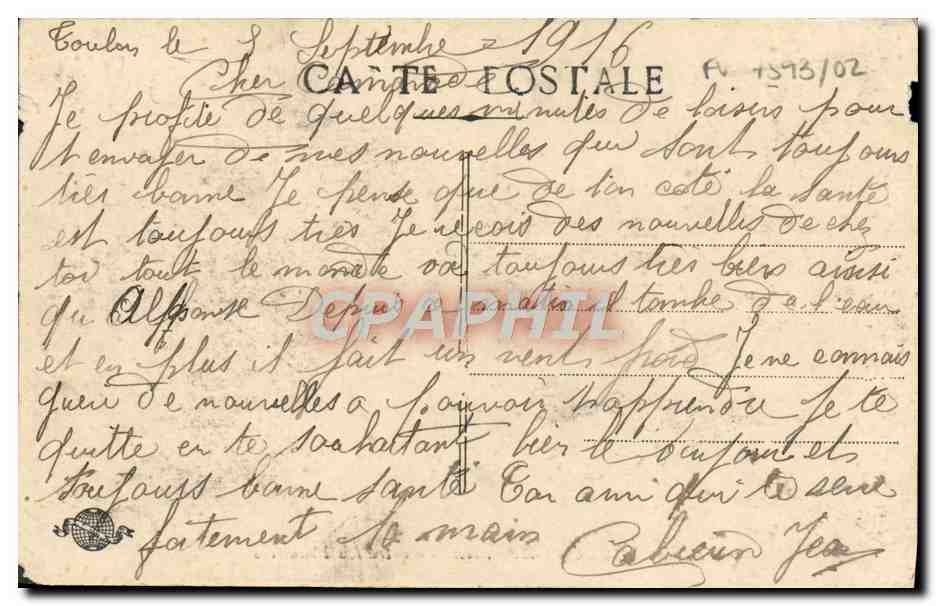 Toulon le 3 Septembre 1916
Cher Camarade
CARTE POSTALE
A 7593/02
Je profite de quelques minutes de loisirs pour
t envoyer de mes nouvelles qui sont toujours
très bonne Je pense que de ton coté la santé
est toujours très Je recois des nouvelles de chez
toi tout le monde va toujours très bien ainsi
qu Alphonse Depuis ce matin il tombe de l'eau
et en plus il fait un vent froid Je ne connais
guere de nouvelles a pouvoir t'apprendre Je te
quitte en te souhaitant bien le bonjour et
toujours bonne santé Ton ami qui te serre
fortement la main
Jean
CPAPHIL